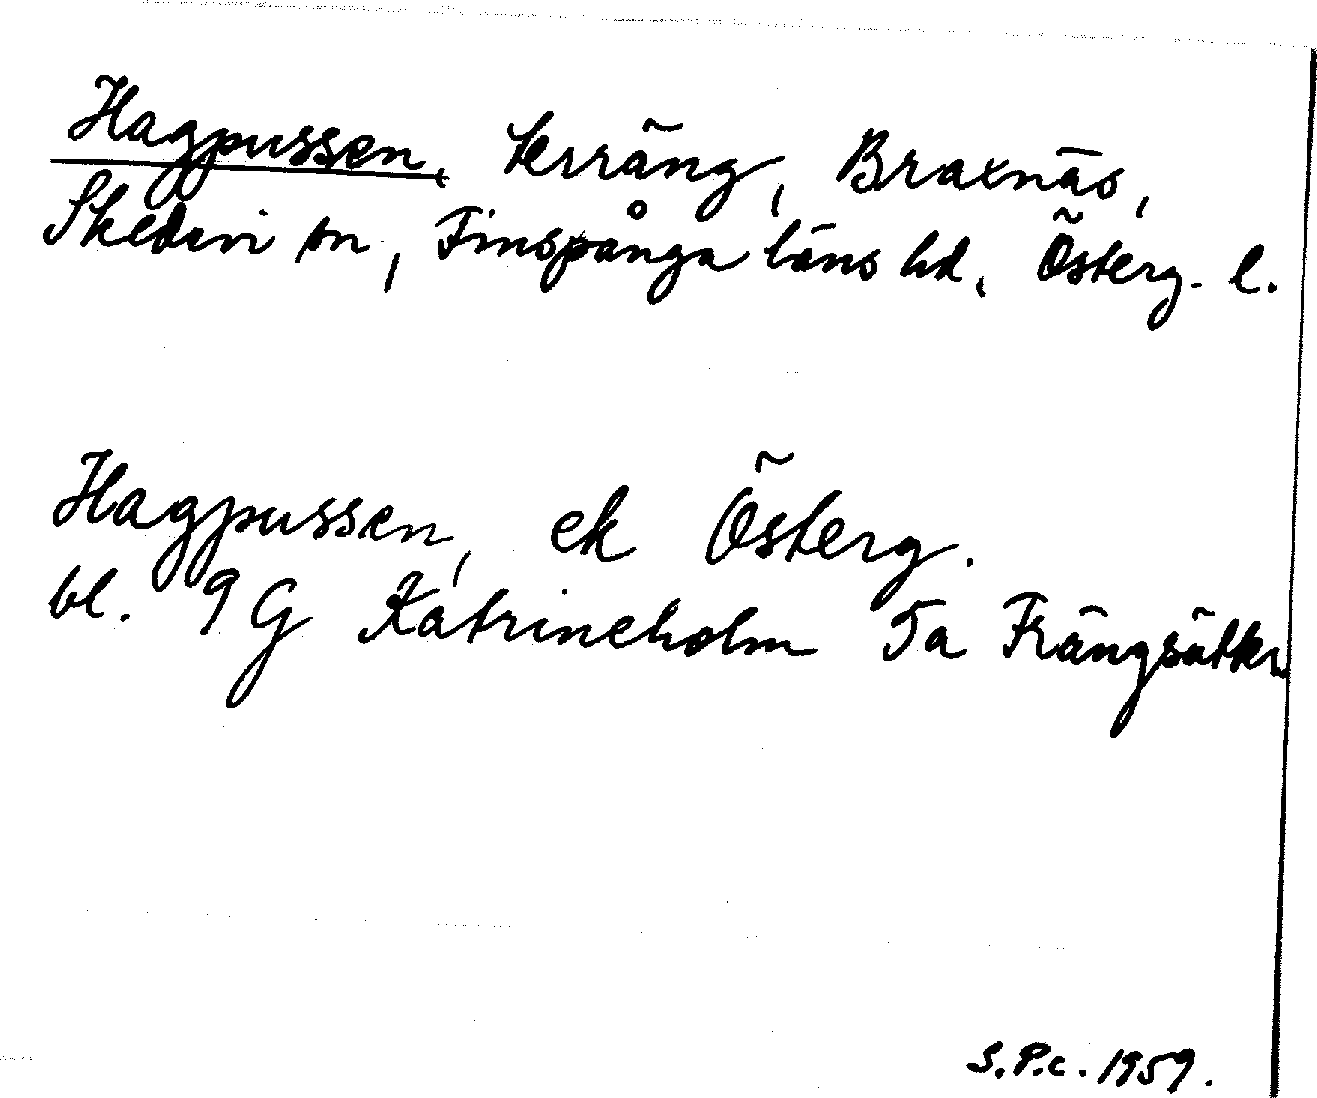 Hagpussen, terräng, Braxnäs,
Skedevi sn, Finspånga läns hd, Österg. l.
Hagpussen, ek Österg.
bl. 9 G Katrineholm 5a Frängsätter
S.P.c. 1959.